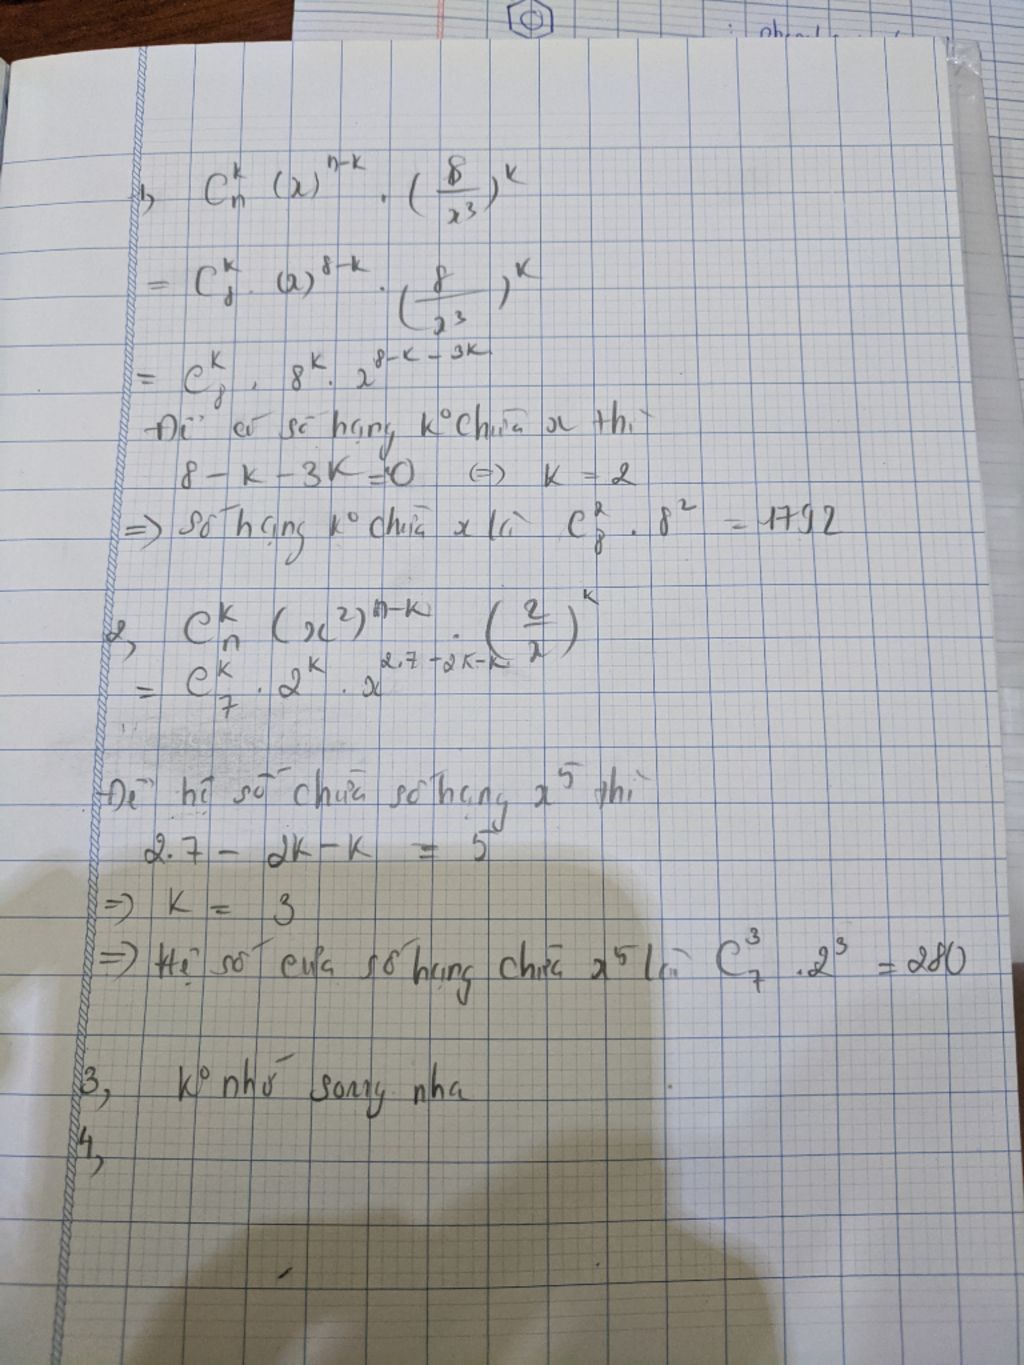 1, C_n^k (x)^{n-k} . (8/x^3)^k
= C_8^k . (x)^{8-k} . (8/x^3)^k
= C_8^k . 8^k . x^{8-k-3k}
Để có số hạng k° chứa x thì
8 - k - 3k = 0 (=) k = 2
=> số hạng k° chứa x là C_8^2 . 8^2 = 1792
2, C_n^k (x^2)^{n-k} . (2/x)^k
= C_7^k . 2^k . x^{2.7-2k-k}
Để hệ số chứa số hạng x^5 thì
2.7 - 2k - k = 5
=> k = 3
=> Hệ số của số hạng chứa x^5 là C_7^3 . 2^3 = 280
3, k° nhớ song nha
4,